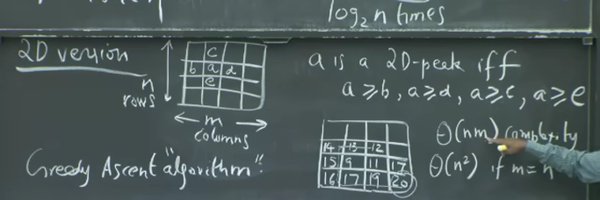 log₂n times
2D version
n rows
c
b a d
e
m columns
a is a 2D-peak iff
a ≥ b, a ≥ d, a ≥ c, a ≥ e
Greedy Ascent "algorithm".
14 13 12
15 9 11 17
16 17 19 20
Θ(nm) complexity
Θ(n²) if m = n